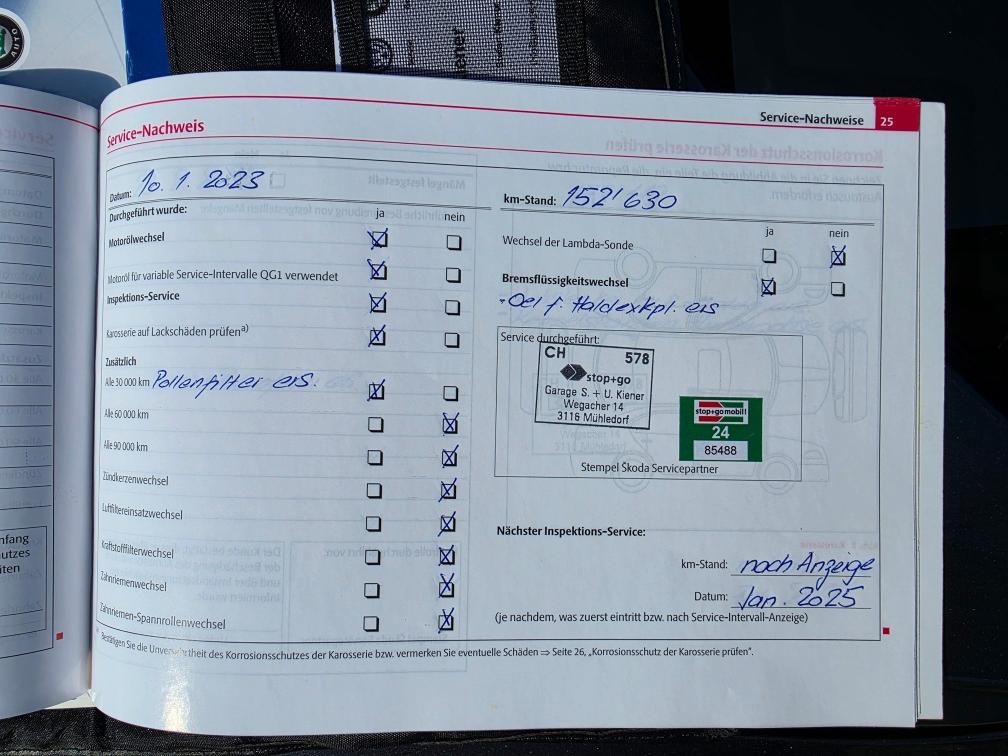 AUTO
iener
Service-Nachweise 25
Service-Nachweis
Datum: 10. 1. 2023
km-Stand: 152'630
Durchgeführt wurde: ja nein
Motorölwechsel
Motoröl für variable Service-Intervalle QG1 verwendet
Inspektions-Service
Karosserie auf Lackschäden prüfen a)
Zusätzlich
Alle 30 000 km Pollenfilter ers.
Alle 60 000 km
Alle 90 000 km
Zündkerzenwechsel
Luftfiltereinsatzwechsel
Kraftstofffilterwechsel
Zahnriemenwechsel
Zahnriemen-Spannrollenwechsel
ja nein
Wechsel der Lambda-Sonde
Bremsflüssigkeitswechsel
+Oel f. Haldexkpl. ers
Service durchgeführt:
CH 578
stop+go
Garage S. + U. Kiener
Wegacher 14
3116 Mühledorf
stop+go mobil!
24
85488
Stempel Škoda Servicepartner
Nächster Inspektions-Service:
km-Stand: nach Anzeige
Datum: Jan. 2025
(je nachdem, was zuerst eintritt bzw. nach Service-Intervall-Anzeige)
Bestätigen Sie die Unversehrtheit des Korrosionsschutzes der Karosserie bzw. vermerken Sie eventuelle Schäden ⇒ Seite 26, „Korrosionsschutz der Karosserie prüfen“.
nfang
utzes
iten